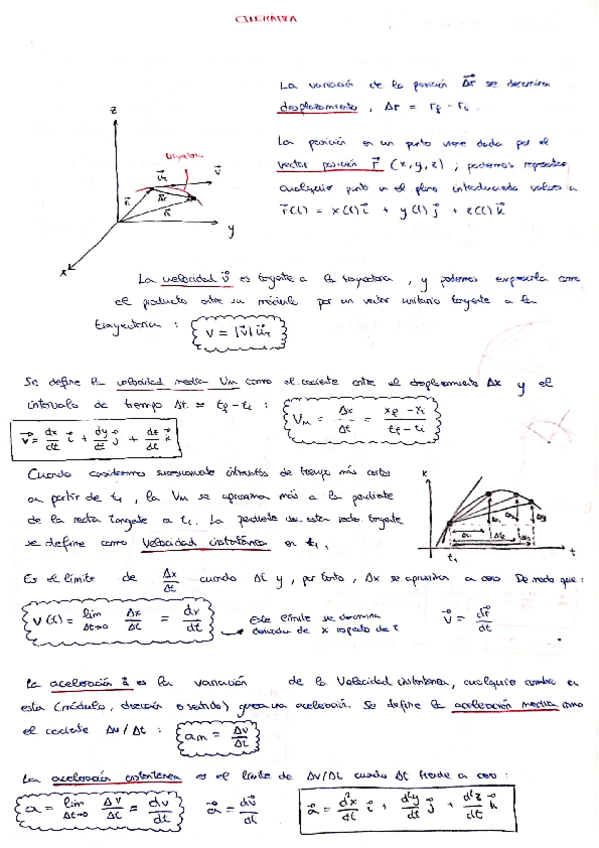 CINEMÁTICA
La variación de la posición Δr⃗ se denomina
desplazamiento, Δr = rf - ri.
La posición en un punto viene dada por el
vector posición r⃗ (x,y,z); podemos representar
cualquier punto en el plano introduciendo valores a
r⃗(t) = x(t)i⃗ + y(t)j⃗ + z(t)k⃗
z
trayectoria
u⃗T
v⃗
Δr
r⃗
y
x
La velocidad v⃗ es tangente a la trayectoria, y podemos expresarla como
el producto entre su módulo por un vector unitario tangente a la
trayectoria: v = |v⃗| u⃗T
Se define la velocidad media Vm como el cociente entre el desplazamiento Δx y el
intervalo de tiempo Δt = tf - ti : VM = Δx/Δt = (xf - xi)/(tf - ti)
v⃗ = dx/dt i⃗ + dy/dt j⃗ + dz/dt k⃗
Cuando consideramos sucesivamente intervalos de tiempo más cortos
a partir de t1, la VM se aproxima más a la pendiente
de la recta tangente a t1. La pendiente de esta recta tangente
se define como velocidad instantánea en t1.
x
t1
t
Es el límite de Δx/Δt cuando Δt y, por tanto, Δx se aproxima a cero. De modo que:
v(t) = lim Δt→0 Δx/Δt = dx/dt
Este límite se denomina
derivada de x respecto de t
v⃗ = dr⃗/dt
La aceleración a⃗ es la variación de la velocidad instantánea, cualquier cambio en
esta (módulo, dirección o sentido) genera una aceleración. Se define la aceleración media como
el cociente Δv/Δt : am = Δv/Δt
La aceleración instantánea es el límite de Δv/Δt cuando Δt tiende a cero:
a = lim Δt→0 Δv/Δt = dv/dt a⃗ = dv⃗/dt a⃗ = d²x/dt i⃗ + d²y/dt j⃗ + d²z/dt k⃗